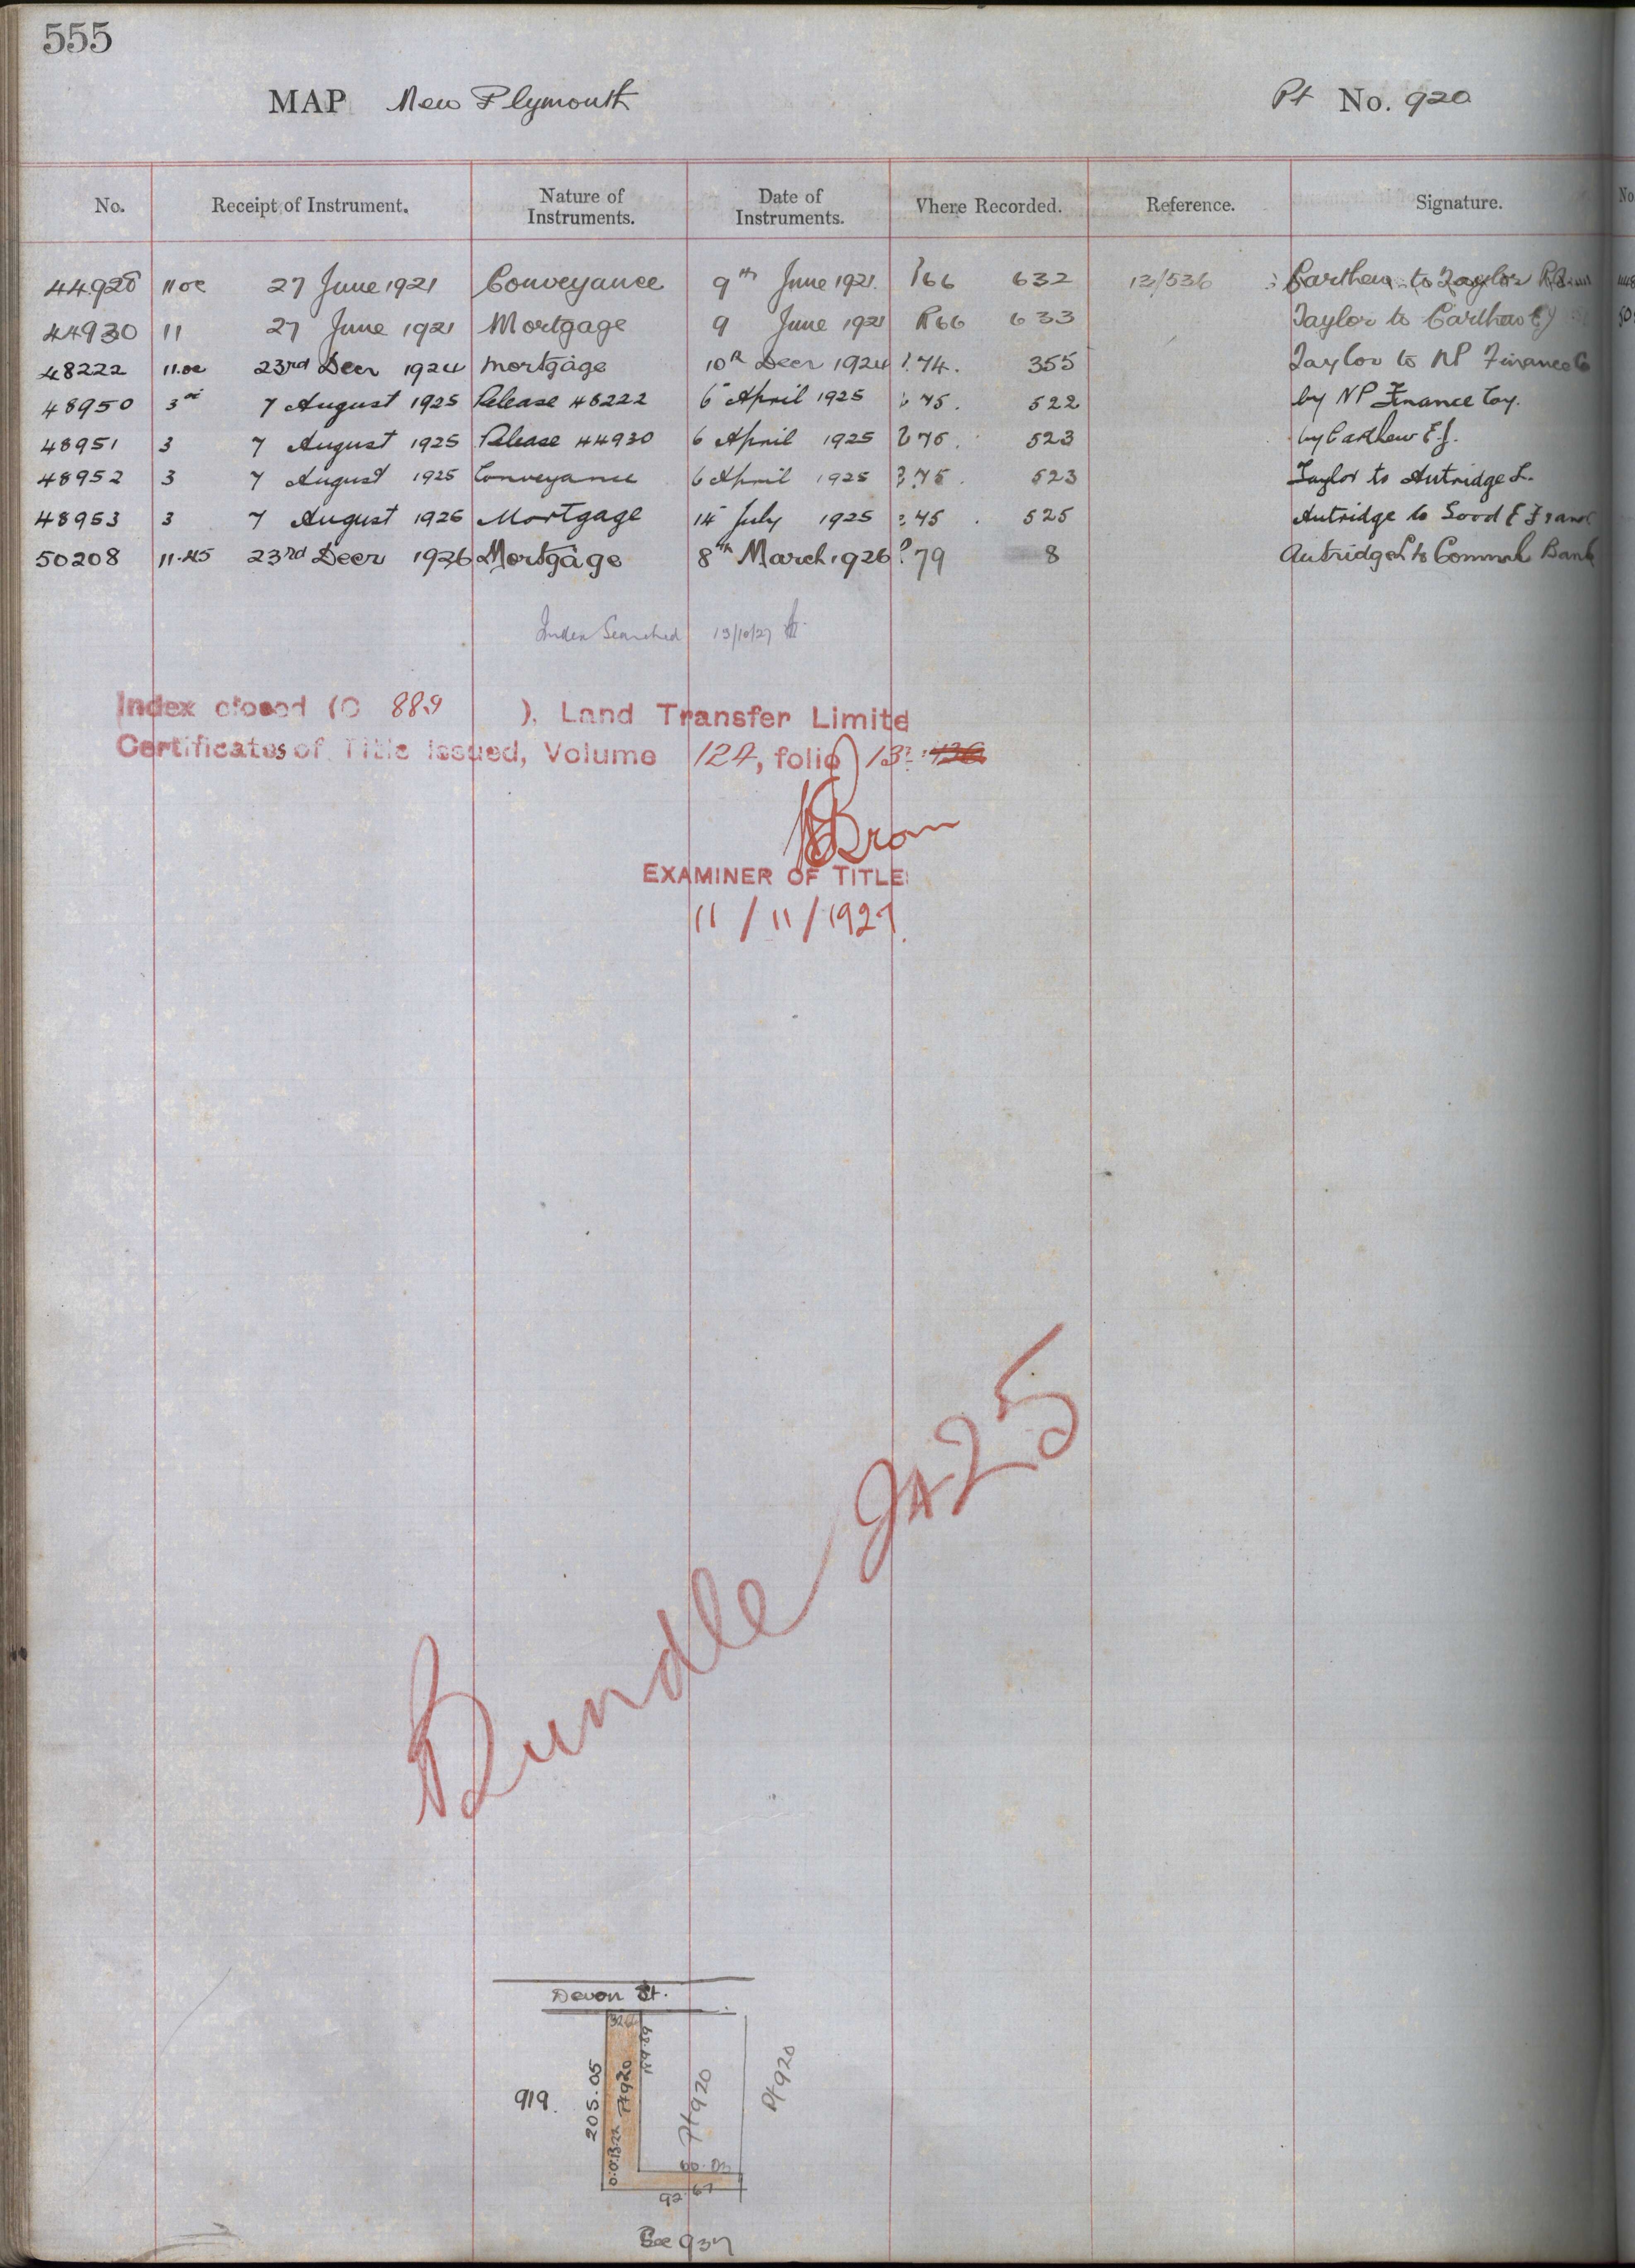 555
MAP New Plymouth Pt No. 920
No. Receipt of Instrument. Nature of Instruments. Date of Instruments. Where Recorded. Reference. Signature. No
44928 11 oc 27 June 1921 Conveyance 9th June 1921 R66 632 12/536 Carthew to Taylor
44930 11 27 June 1921 Mortgage 9 June 1921 R66 633 Taylor to Carthew E J
48222 11.oc 23rd Decr 1924 Mortgage 10th Decr 1924 74. 355 Taylor to NP Finance Co
48950 3 oc 7 August 1925 Release 48222 6 April 1925 75. 522 by NP Finance Coy.
48951 3 7 August 1925 Release 44930 6 April 1925 75. 523 by Carthew E.J.
48952 3 7 August 1925 Conveyance 6 April 1925 75. 523 Taylor to Autridge L.
48953 3 7 August 1925 Mortgage 14 July 1925 75. 525 Autridge to Sood E
50208 11.45 23rd Decr 1926 Mortgage 8th March 1926 79 8 Autridge L to Bank
Index Searched 13/10/27
Index closed (C 889 ), Land Transfer Limite
Certificates of Title issued, Volume 124, folio 13
Brown
EXAMINER OF TITLE
11/11/1927.
Bundle 2425
Devon St.
326
919.
205.05
0.0.13.22 Pt 920
189.89
Pt 920
Pt 920
60.03
92.67
See 937